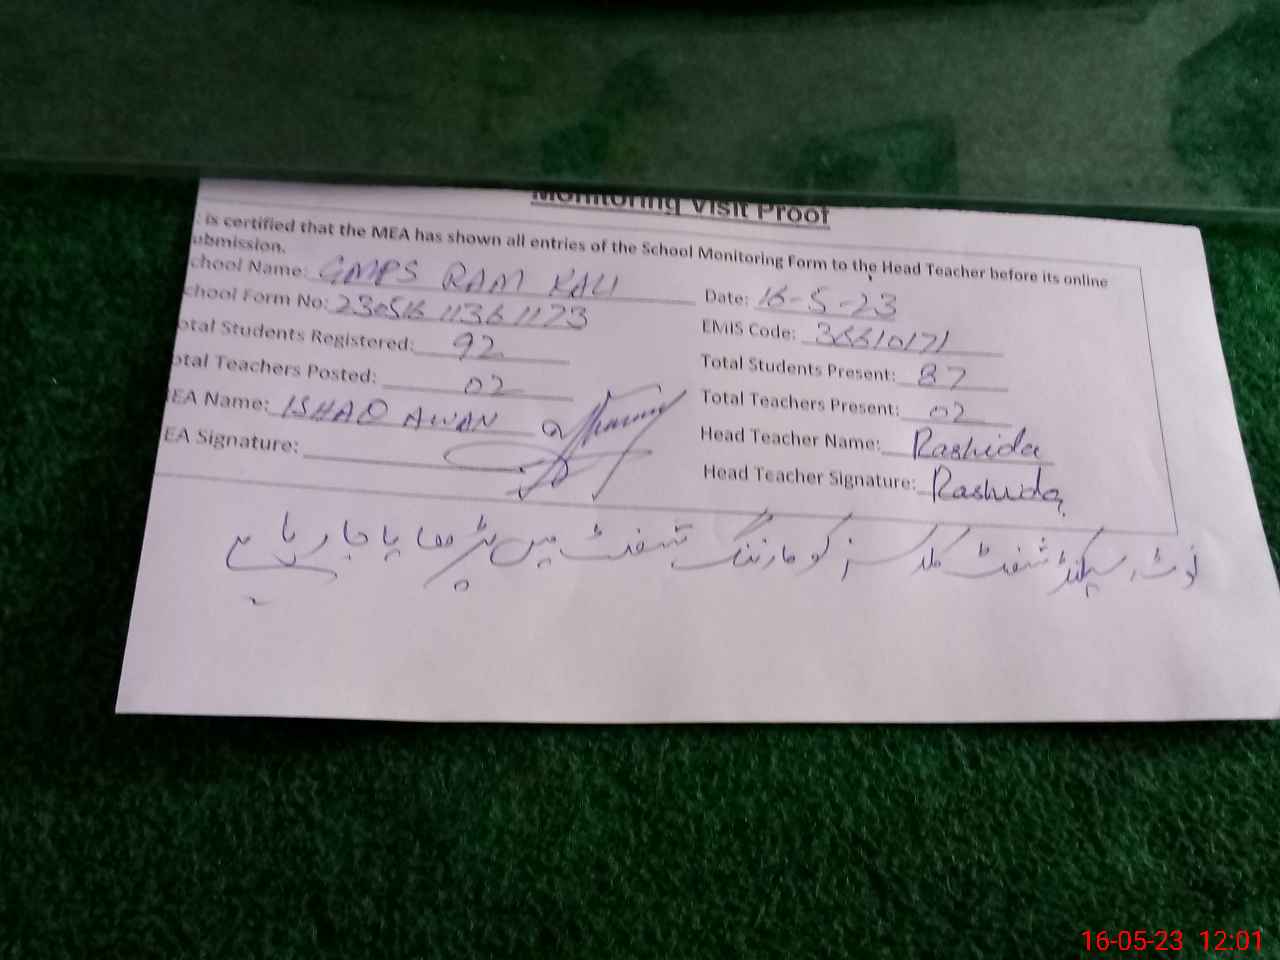 Monitoring Visit Proof
is certified that the MEA has shown all entries of the School Monitoring Form to the Head Teacher before its online
ubmission.
chool Name: GMPS RAM KALI
Date: 16-5-23
chool Form No: 230516 11361173
EMIS Code: 36610171
otal Students Registered: 92
Total Students Present: 87
otal Teachers Posted: 02
Total Teachers Present: 02
EA Name: ISHAQ AWAN
Head Teacher Name: Rashida
EA Signature:
Head Teacher Signature: Rashida
نوٹ، سیکنڈ شفٹ کلاسز کو مارننگ شفٹ میں پڑھایا جا رہا ہے
16-05-23 12:01